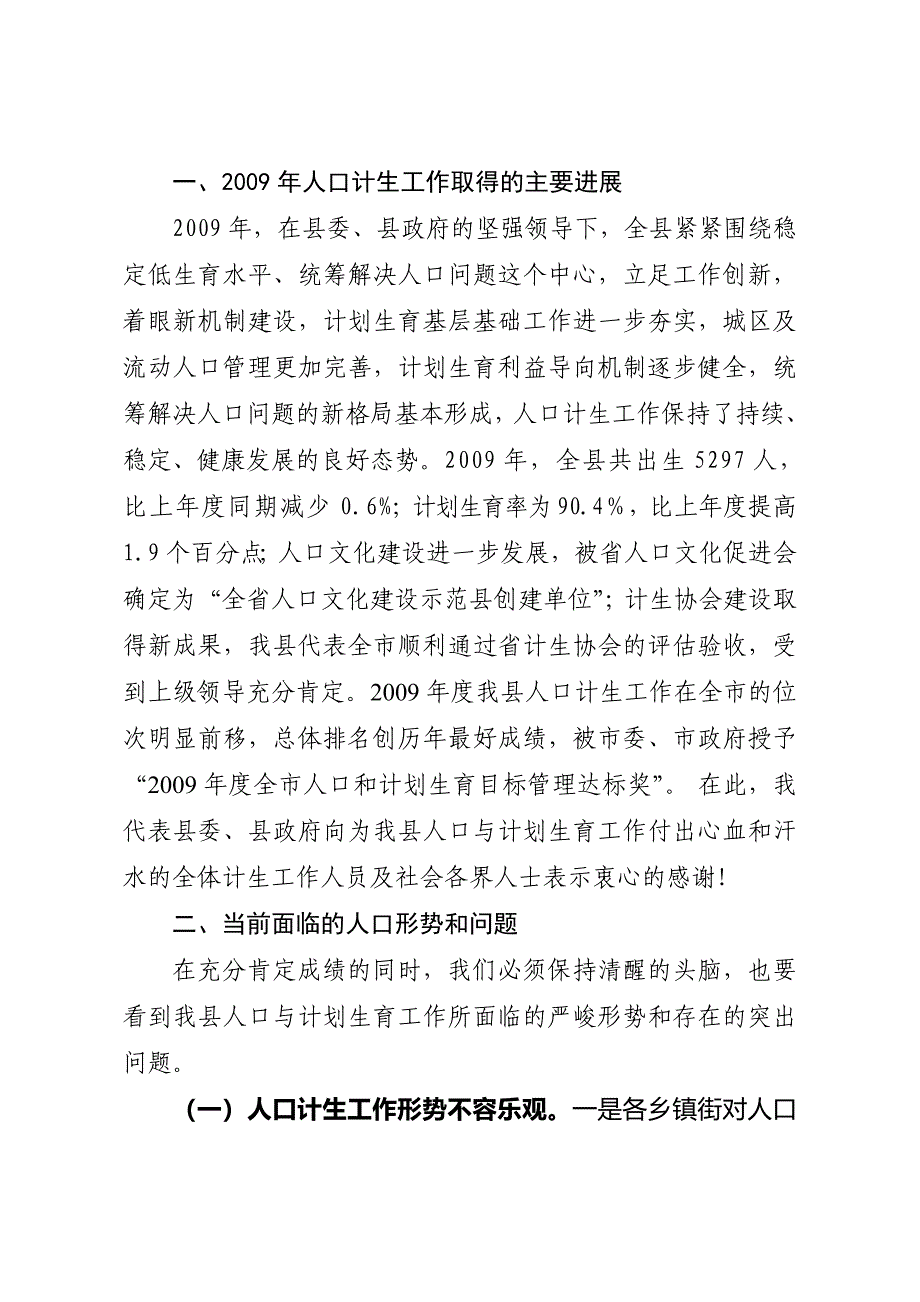 一、2009 年人口计生工作取得的主要进展
2009 年，在县委、县政府的坚强领导下，全县紧紧围绕稳
定低生育水平、统筹解决人口问题这个中心，立足工作创新，
着眼新机制建设，计划生育基层基础工作进一步夯实，城区及
流动人口管理更加完善，计划生育利益导向机制逐步健全，统
筹解决人口问题的新格局基本形成，人口计生工作保持了持续、
稳定、健康发展的良好态势。2009 年，全县共出生 5297 人，
比上年度同期减少 0.6%；计划生育率为 90.4％，比上年度提高
1.9 个百分点；人口文化建设进一步发展，被省人口文化促进会
确定为 “全省人口文化建设示范县创建单位”；计生协会建设取
得新成果，我县代表全市顺利通过省计生协会的评估验收，受
到上级领导充分肯定。2009 年度我县人口计生工作在全市的位
次明显前移，总体排名创历年最好成绩，被市委、市政府授予
“2009 年度全市人口和计划生育目标管理达标奖”。 在此，我
代表县委、县政府向为我县人口与计划生育工作付出心血和汗
水的全体计生工作人员及社会各界人士表示衷心的感谢！
二、当前面临的人口形势和问题
在充分肯定成绩的同时，我们必须保持清醒的头脑，也要
看到我县人口与计划生育工作所面临的严峻形势和存在的突出
问题。
（一）人口计生工作形势不容乐观。一是各乡镇街对人口